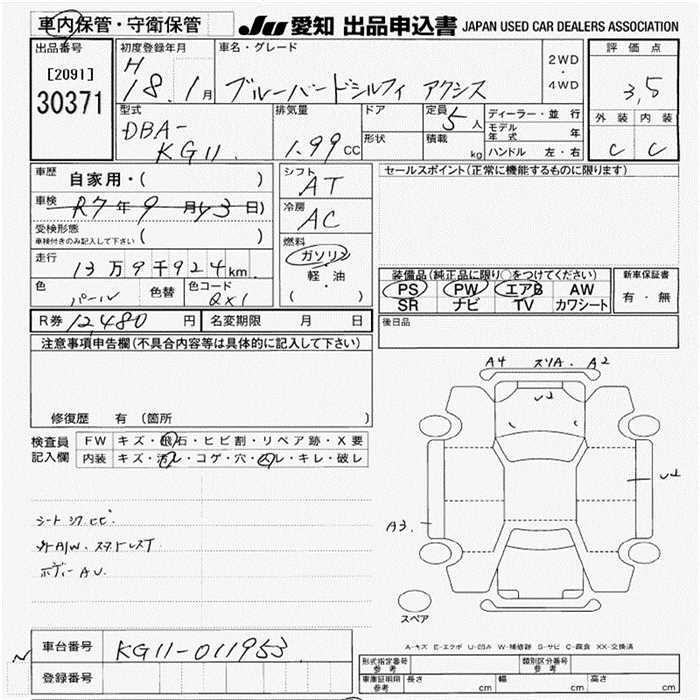 車内保管・守衛保管
JU 愛知 出品申込書 JAPAN USED CAR DEALERS ASSOCIATION
出品番号
[2091]
30371
初度登録年月
H
18.1月
車名・グレード
ブルーバードシルフィ アクシス
2WD
・
4WD
評価点
3,5
外装 内装
C C
型式
DBA-
KG11
排気量
1.99 CC
ドア
形状
定員
5人
積載
kg
ディーラー・並行
モデル年式 年
ハンドル 左・右
車歴
自家用・( )
車検
R7年9月 3日)
受検形態
車検付きのみ記入して下さい ( )
走行
13万9千924km
色
パール
色替
色コード
QX1
シフト
AT
冷房
AC
燃料
ガソリン
軽・油
( ・ )
セールスポイント(正常に機能するものに限ります)
装備品(純正品に限り○をつけてください)
PS PW エアB AW
SR ナビ TV カワシート
新車保証書
有・無
R券 12,480円
名変期限 月 日
後日品
注意事項申告欄(不具合内容等は具体的に記入して下さい)
修復歴 有 (箇所 )
検査員
記入欄
FW キズ・飛石・ヒビ割・リペア跡・X要
内装 キズ・汚レ・コゲ・穴・スレ・キレ・破レ
シート
ボディーAU
A4 スリA. A2
A3.
スペア
A-キズ E-エクボ U-凹み W-補修跡 S-サビ C-腐食 XX-交換済
車台番号
KG11-011953
登録番号
形式指定番号
参考
類別区分番号
参考
車庫証明用
参考
長さ cm
幅 cm
高さ cm